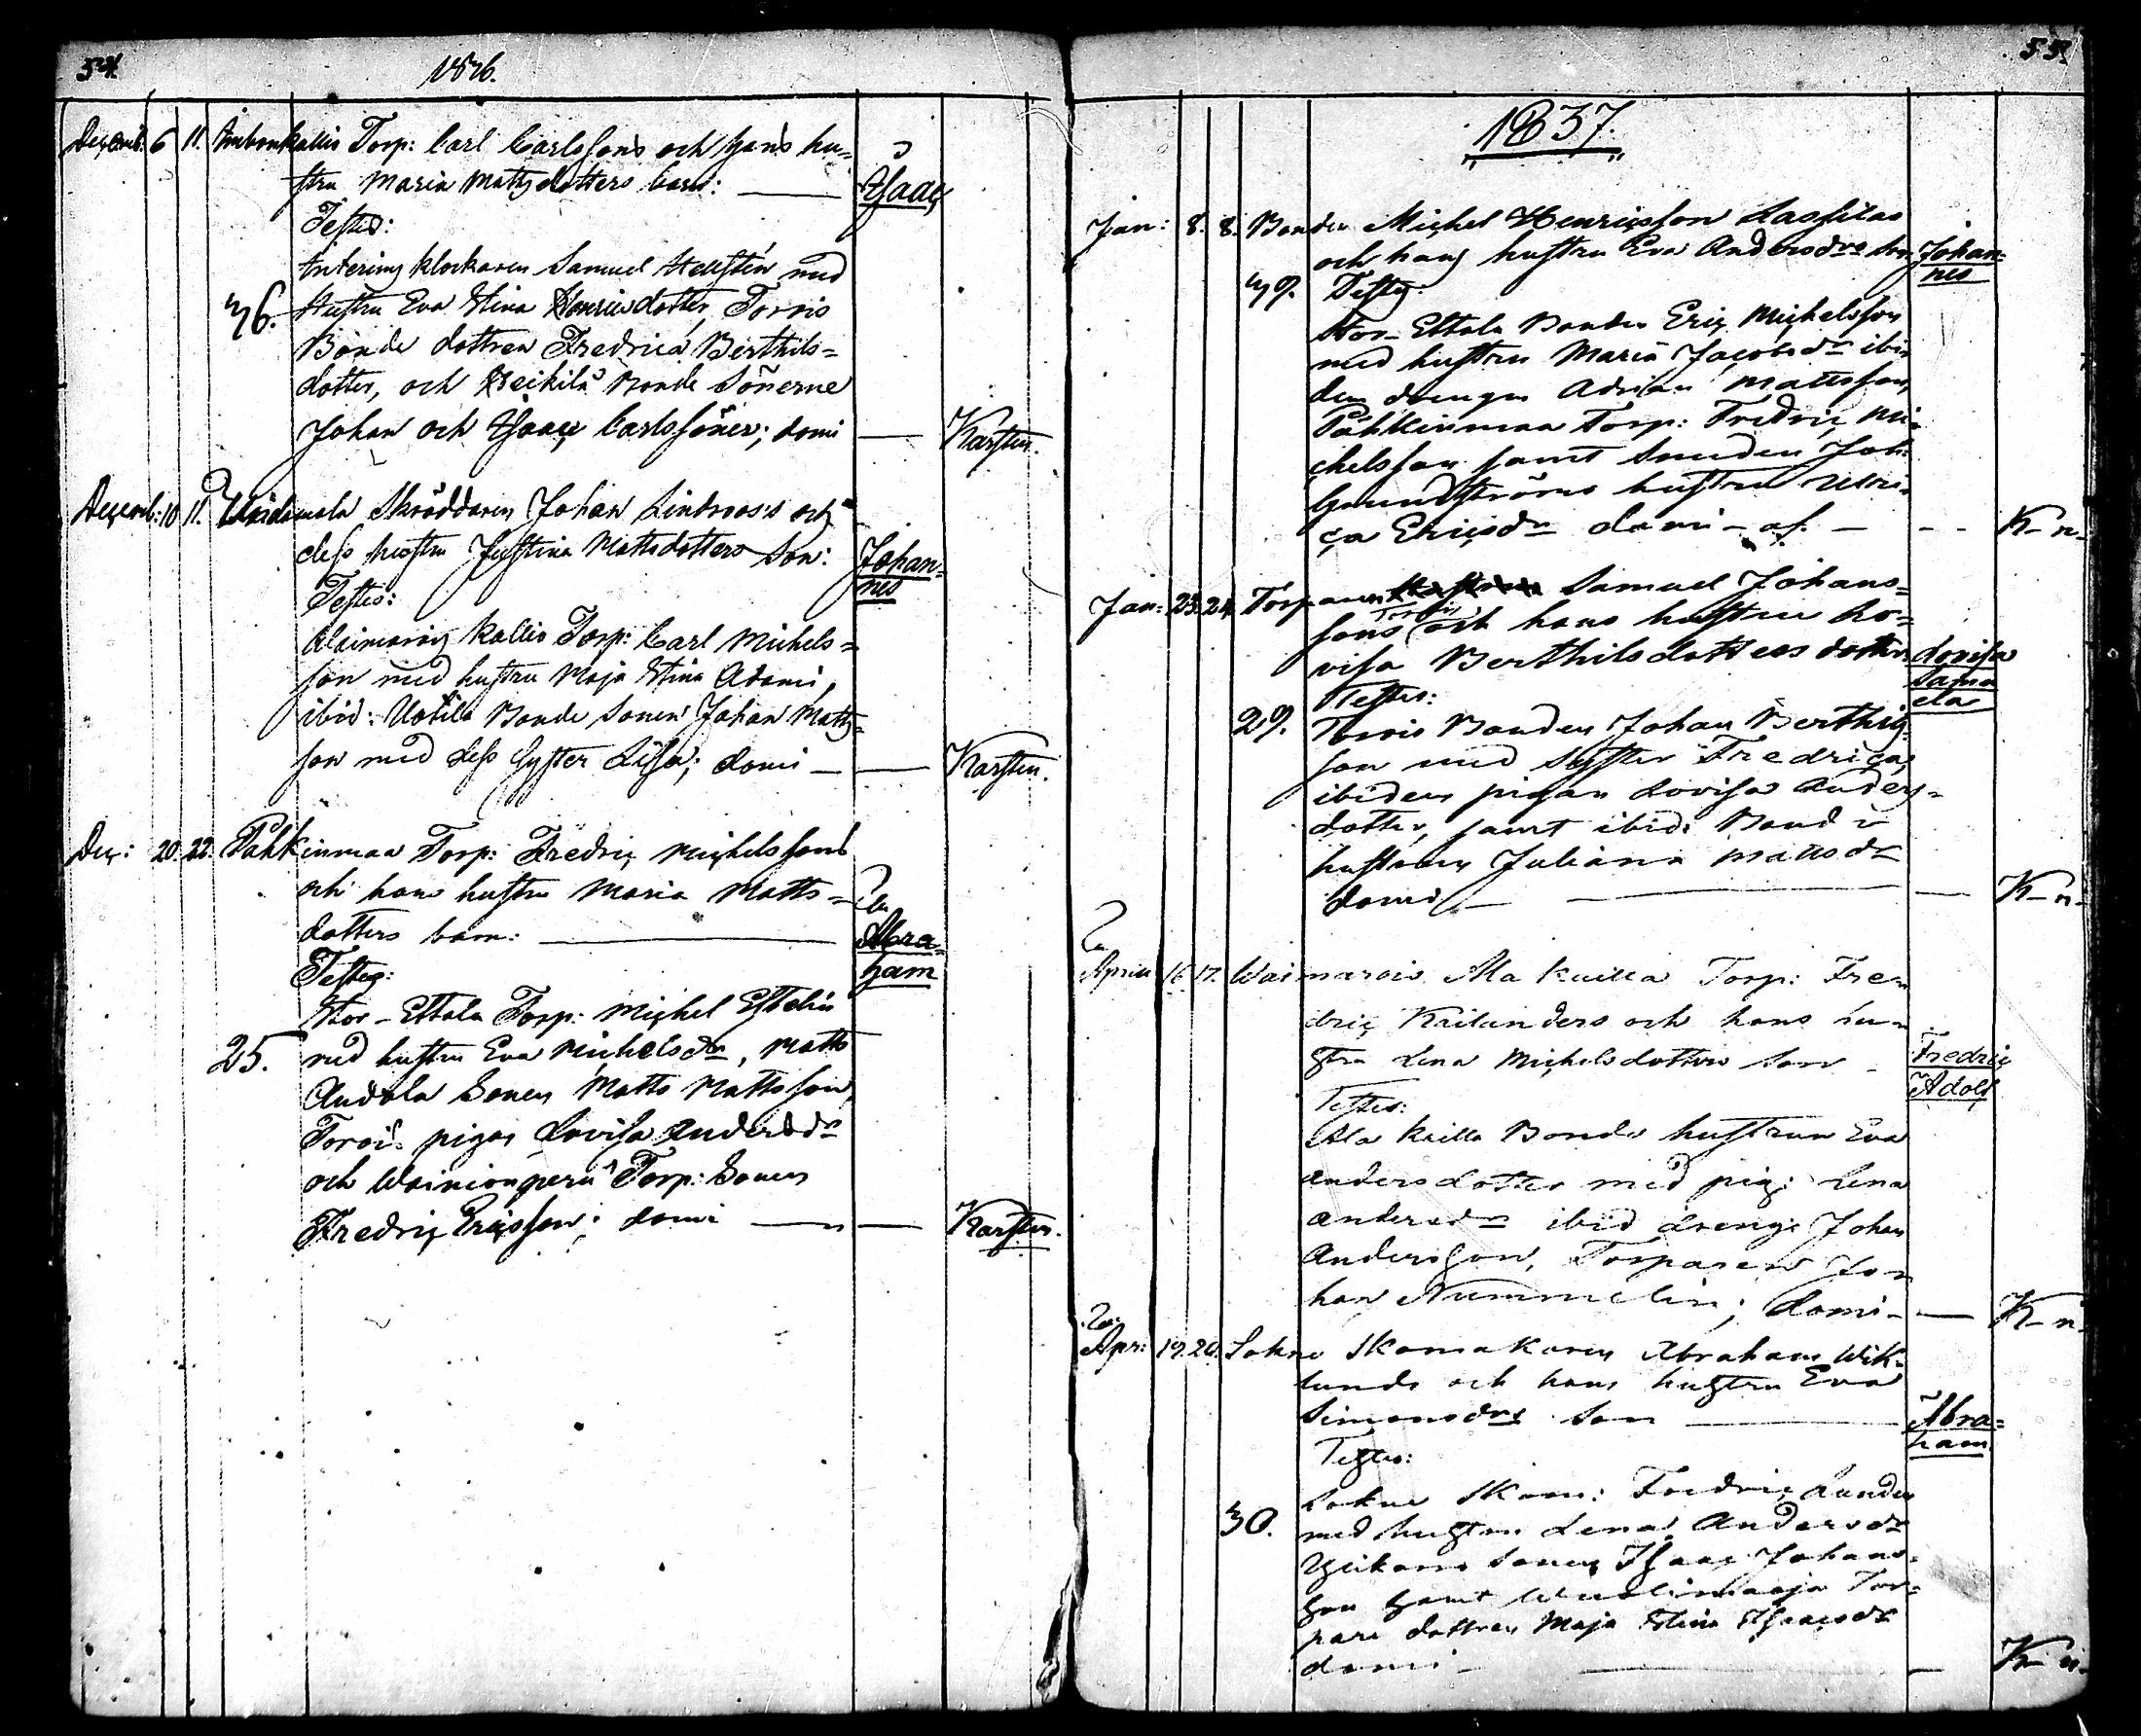 54. 1836.
Decemb: 6 11. kallio Torp: Carl Carlssons och hans hu-
stru Maria Mattsdotters barn: Isaac
Testes:
klockaren Samuel Hellstén med
36. Hustru Eva Stina Henricsdotter, Torvis
Bonde dottren Fredrica Berthils-
dotter, och Heikilä Bonde Sönerne
Johan och Isaac Carlssöner; domi — Karsten.
Decemb: 10 11. Skräddaren Johan Lindroos's och
dess hustru Justina Mattsdotters Son: Johan-
nes
Testes:
kallio Torp: Carl Michels-
son med hustru Maja Stina Adami,
ibid: Uotila Bonde Sonen Johan Matts-
son med dess Syster Lisa; domi — Karsten.
Dec: 20. 22. Pähkinmaa Torp: Fredric Michelssons
och hans hustru Maria Matts-
dotters barn: — Abra-
ham
Testes:
Stor-Ettala Torp: Michel
25. med hustru Eva Michelsdr, Matts
Andola Sonen Matts Mattsson,
Torvis pigan Lovisa Andersdr
och Wainionperä Torp: Sonen
Fredric Ericsson; domi — Karsten.
55.
1837.
Jan: 8. 8. Bonden Michel Henricsson Lassilas
och hans hustru Eva Andersdrs son Johan-
nes
39. Testes:
Stor-Ettala Bonden Eric Michelsson
med hustru Maria Jacobsdr ibi-
dem drengen Adrian Mattsson,
Pähkinmaa Torp: Fredric Mi-
chelsson samt Smeden Joh:
Grundströms hustru Ulri-
ca Ericsdr domi — K-n.
Jan: 23. 24. Torparen Samuel Johans-
sons Torvis och hans hustru Lo-
visa Berthilsdotters dotter Lovisa
Samu
ela
Testes:
29. Torvis Bonden Johan Berthils-
son med Syster Fredrica,
ibidem pigan Lovisa Anders-
dotter, samt ibid: Bonde
hustrun Juliana Mattsdr
domi — K-n.
Aprill 16. 17. Waimarois Ala Kuilla Torp: Fre-
dric Kailanders och hans hu-
stru Lena Michelsdotters Son Fredric
Adolf
Testes:
Ala Kuilla Bonde hustrun Eva
Andersdotter med pig: Lena
Andersdr ibid dreng: Johan
Andersson, Torparen Jo-
han Nummelin; domi — K-n.
Apr: 19. 20. Sohne Skomakaren Abraham Wik-
lunds och hans hustru Eva
Simonsdrs Son — Abra-
ham
Testes:
Sohne Skom: Fredric Lunden
30. med hustru Lena Andersdr
Sonen Isaac Johans-
son samt Tor-
pare dottren Maja Stina Isaacsdr
domi — K-n.